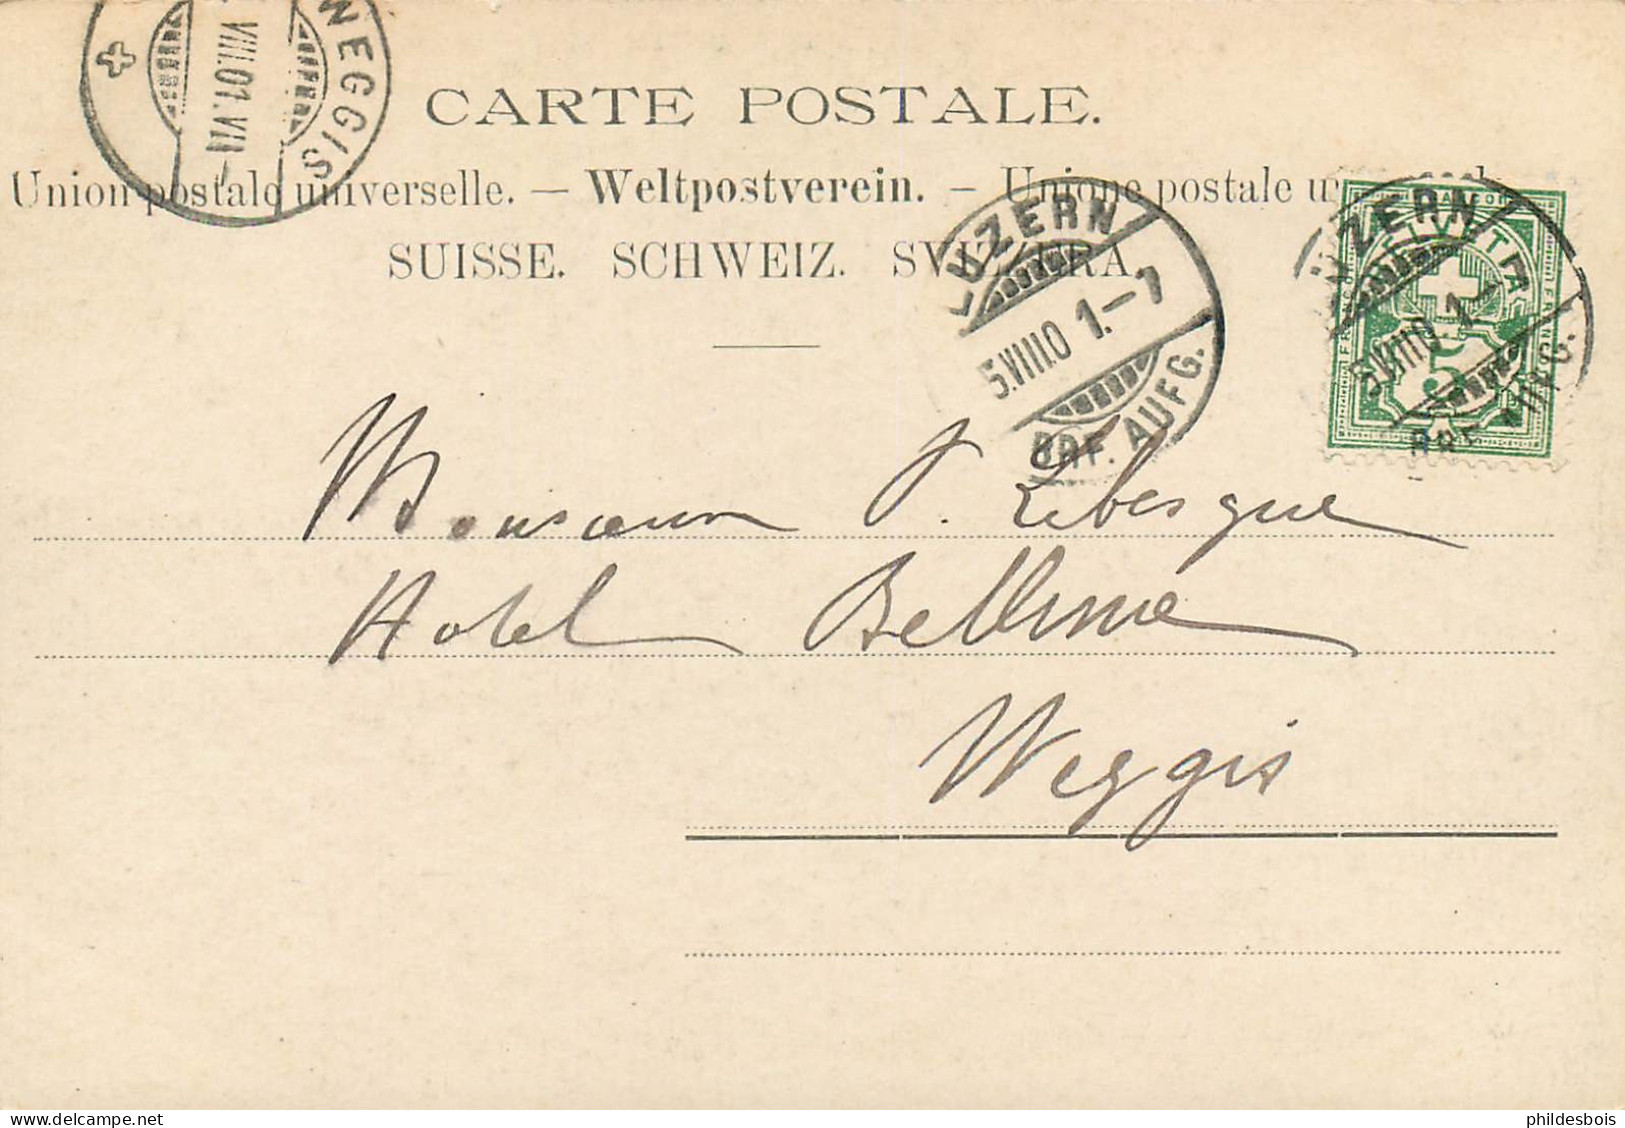 WEGGIS
VIII.01.VII
CARTE POSTALE.
Union postale universelle. — Weltpostverein. — Unione postale
SUISSE. SCHWEIZ. SVIZZERA.
LUZERN
5.VIII.0 1.-7
BRF. AUFG.
LUZERN
5.VIII.0 1.-
BRF. AUFG.
HELVETIA
FRANCO
5
Monsieur P. Lebesgue
Hotel Bellevue
Weggis
delcampe.net
phildesbois